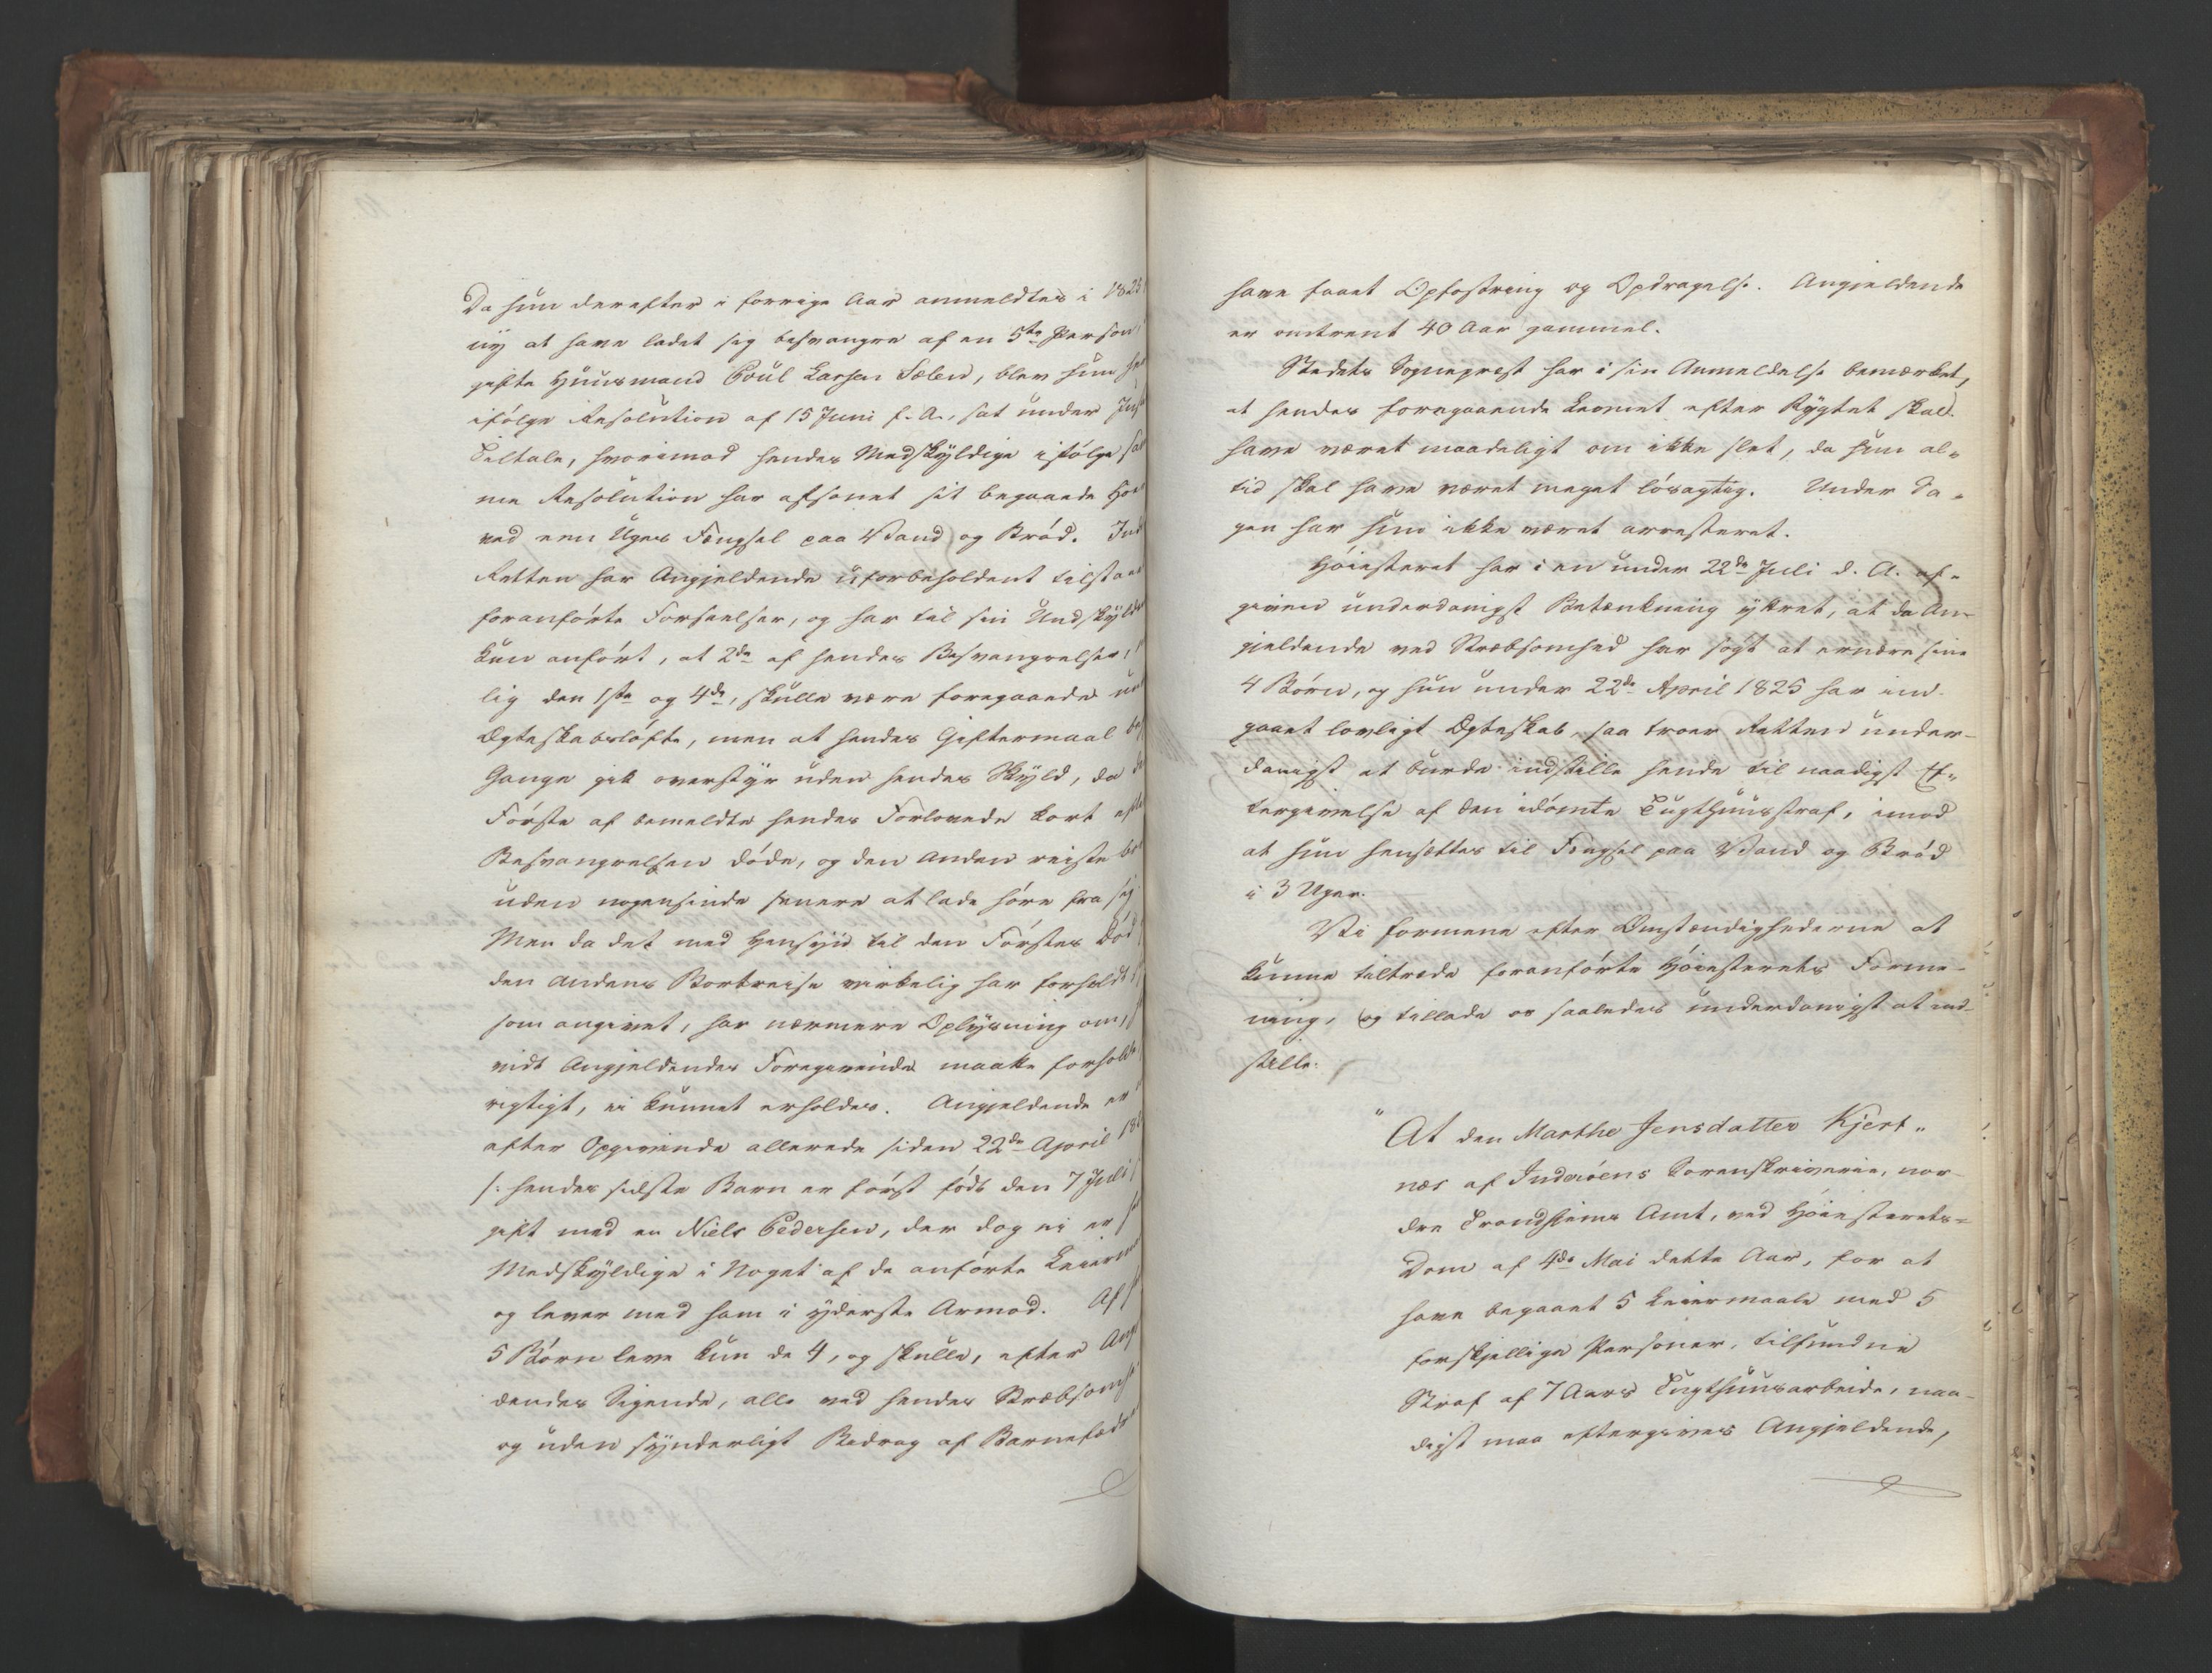 Da hun derefter i forrige Aar anmeldtes i
ny at have ladet sig besvangre af en 5te Person,
gifte Huusmand Poul Larsen Sælen, blev hun
ifølge Resolution af 15 Juni f. A., sat under
Tiltale, hvorimod hendes Medskyldige ifølge
me Resolution har afsonet sit begaaede
ved een Uges Fængsel paa Vand og Brød.
Retten har Angjeldende uforbeholdent
foranførte Forseelser, og har til sin
kun anført, at 2de af hendes Besvangrelser,
lig den 1ste og 4de, skulle være foregaaede
Ægteskabsløfte, men at hendes Giftermaal
Gange gik overstyr uden hendes Skyld, da
Første af bemeldte hendes Forlovede kort
Besvangrelsen døde, og den Anden reiste
uden nogensinde senere at lade høre fra sig
Men da det med Hensyn til den Førstes Død
den Andens Bortreise virkelig har forholdt
som angivet, har nærmere Oplysning om,
vidt Angjeldendes Foregivende maatte
rigtigt, ei kunnet erholdes. Angjeldende er
efter Opgivende allerede siden 22de April
/: hendes sidste Barn er først født den 7 Juli
gift med en Niels Pedersen, der dog ei er
Medskyldige i Noget af de anførte
og lever med ham i yderste Armod. Af
5 Børn leve kun de 4, og skulle, efter
dendes Sigende, alle ved hendes
og uden synderligt Bidrag af
have faaet Opfostring og Opdragelse. Angjeldende
er omtrent 40 Aar gammel.
Stedets Sogneprest har i sin Anmeldelse bemærket,
at hendes foregaaende Levnet efter Rygtet skal
have været maadeligt om ikke slet, da hun al„
tid skal have været meget løsagtig. Under Sa„
gen har hun ikke været arresteret.
Høiesteret har i en under 22de Juli d. A. af„
given underdanigst Betænkning yttret, at da An„
gjeldende ved Stræbsomhed har søgt at ernære sine
4 Børn, og hun under 22de April 1825 har ind„
gaaet lovligt Ægteskab, saa troer Retten under„
danigst at burde indstille hende til naadigst Ef„
tergivelse af den idømte Tugthuusstraf, imod
at hun hensættes til Fængsel paa Vand og Brød
i 3 Uger.
Vi formene efter Omstændighederne at
kunne tiltræde foranførte Høiesterets Forme„
ning, og tillade os saaledes underdanigst at ind„
stille:
"At den Marthe Jensdatter Kjert„
næs af Inderøens Sorenskriverie, nor„
dre Trondhjems Amt, ved Høiesterets„
Dom af 4de Mai dette Aar, for at
have begaaet 5 Leiermaale med 5
forskjellige Personer, tilfundne
Straf af 7 Aars Tugthuusarbeide, naa„
digst maa eftergives Angjeldende,